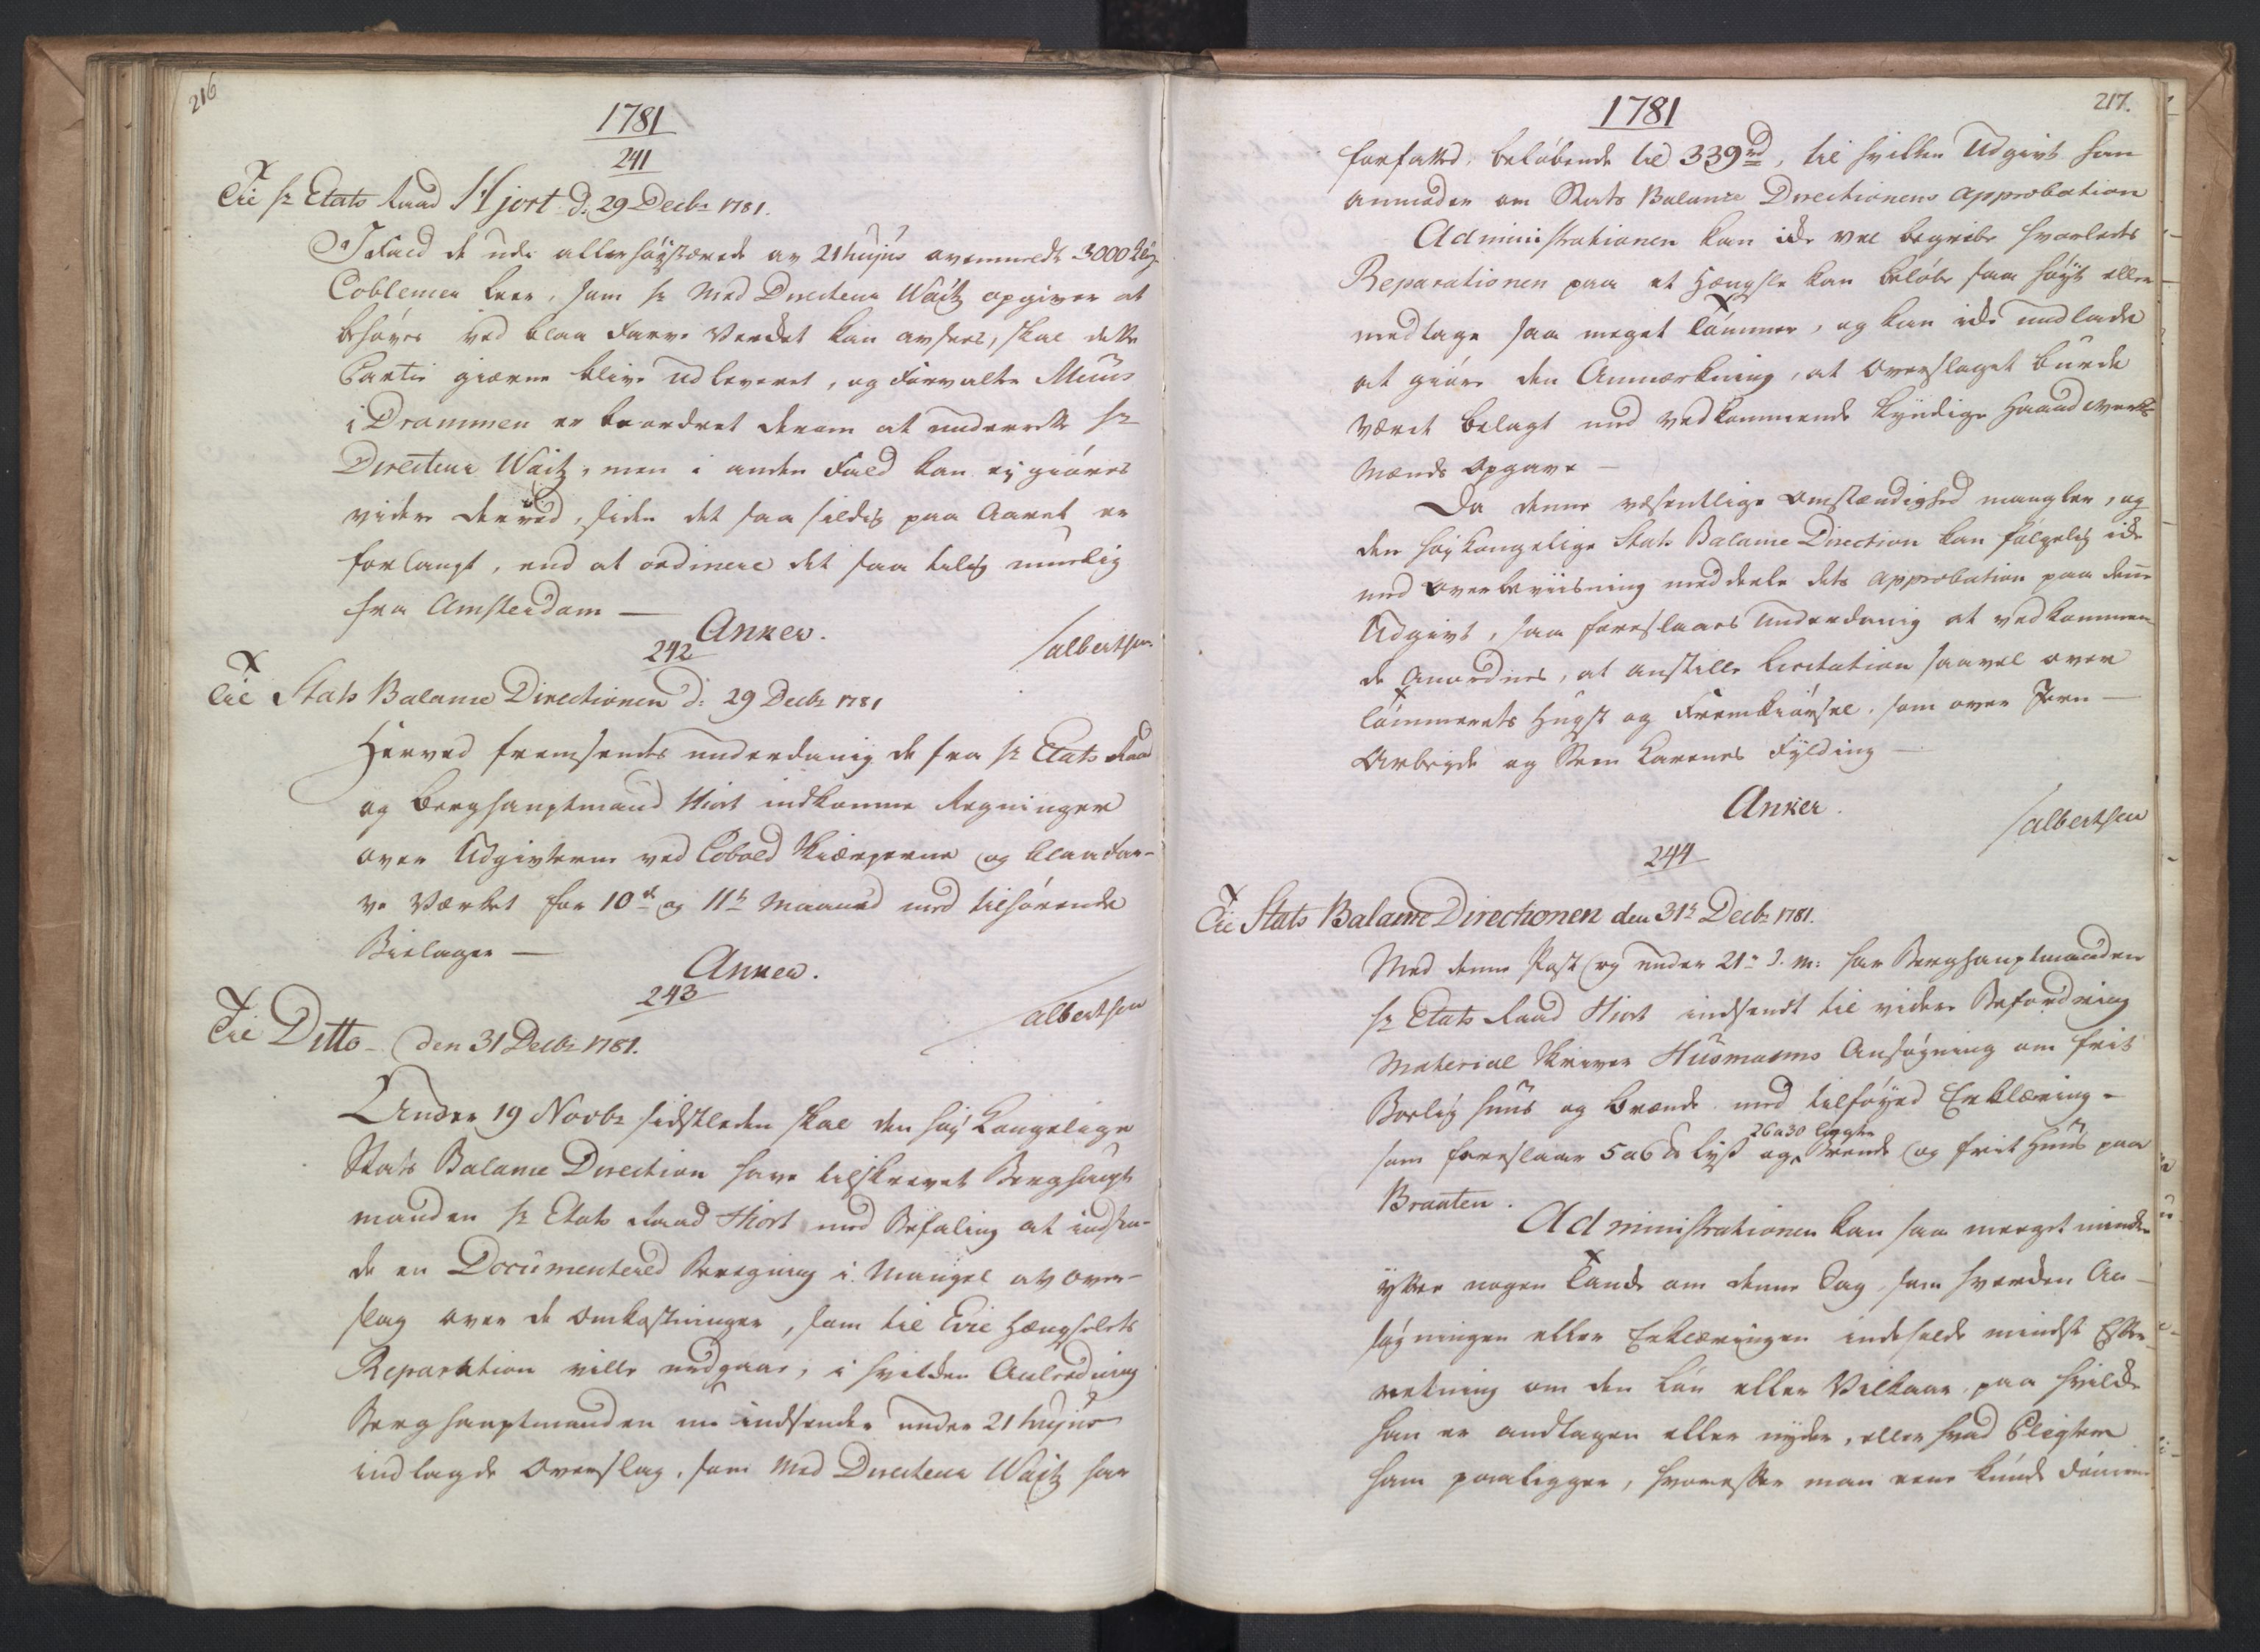 216
1781
241
Til Hr Etats Raad Hjort d: 29 Decbr 1781.
I Fald de udi allerhøystærede av 21 hujus ommeldte 3000
Coblenser Leer, som Hr Med Directeur Waitz opgiver at
behøves ved blaa Farve Verket kan avsees, skal dette
Partie gierne blive udleveret, og Forvalter Muus
i Drammen er beordret derom at underrette Hr
Directeur Waitz, men i anden Fald kan ej giøres
videre derved, siden det saa sildig paa Aaret er
forlangt, end at ordinere det saa tilig muelig
fra Amsterdam —
Anker.
Albertsen
242
Til Stats Balance Directionen d: 29 Decbr 1781
Herved fremsendes underdanig de fra Hr Etats Raad
og Berghauptmand Hiort indkomne Regninger
over Udgivterne ved Cobold Skiærperne og blaa Far-
ve Værket for 10de og 11te Maaned med tilhørende
Bielager —
Anker.
Albertsen
243
Til Ditto – den 31 Decbr 1781.
Under 19 Novbr sidstleden skal den høy Kongelige
Stats Balance Direction have tilskrevet Berghaupt
manden Hr Etats Raad Hiort med Befaling at indsen-
de en Documentered Beregning i Mangel av Over-
slag over de Omkostninger, som til Evje Hængselets
Reparation ville medgaae, i hvilken Anledning
Berghauptmanden nu indsender under 21 hujus
indlagde Overslag, som Med Directeur Waitz har
217.
1781
forfatted, beløbende til 339 rd, til hvilken Udgivt han
anmoder om Stats Balance Directionens Approbation
Administrationen kan icke vel begribe hvorledes
Reparationen paa et Hængsle kan beløbe saa høyt eller
medtage saa meget Tømmer, og kan icke undlade
at giøre den Anmærkning, at Overslaget burde
været belagt med vedkommende kyndige Haandverks
Mænds Opgave —
Da denne væsentlige Omstændighed mangler, og
den høy Kongelige Stats Balance Direction kan følgelig icke
med Overbeviisning meddeele dets Approbation paa denne
Udgivt, saa foreslaaes underdanig at vedkommen-
de Anordnes, at anstille Licitation saavel over
Tømmerets Hugst og Fremkiørsel, som over Jern –
Arbeyde og Steen Karenes Fylding —
Anker.
Albertsen
244
Til Stats Balance Directionen den 31te Decbr 1781.
Med denne Post og under 21de d. m: har Berghauptmanden
Hr Etats Raad Hiort indsendt til videre Befordring
Material Skriver Husmanns Ansøgning om frit
Boelig Huus og Brænde med tilføyed Erklæring –
som foreslaar 5 a 6 lb Lys og 26 a 30 Brænde og frit Huus paa
Braaten.
Administrationen kan saa meeget mindre
yttre nogen Tanke om denne Sag, som hverken An-
søgningen eller Erklæringen indeholde mindste Efter-
retning om den Løn eller Vilkaar, paa hvilke
han er andtagen eller nyder, eller hvad Pligter
ham paaligger, hvorefter man eene kunde dømme